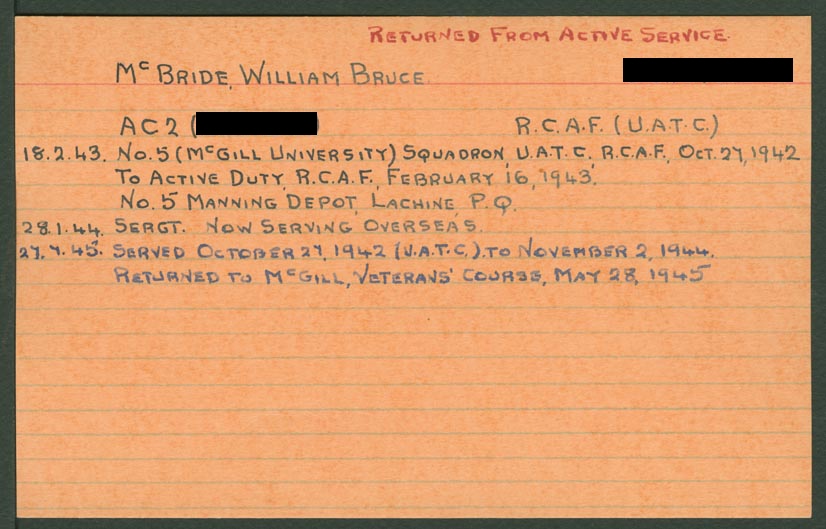 RETURNED FROM ACTIVE SERVICE.
McBRIDE, WILLIAM BRUCE.
AC2 ( ) R.C.A.F. (U.A.T.C.)
18.2.43. No. 5 (McGILL UNIVERSITY) SQUADRON, U.A.T.C., R.C.A.F., OCT. 27, 1942
TO ACTIVE DUTY, R.C.A.F., FEBRUARY 16, 1943.
No. 5 MANNING DEPOT, LACHINE, P.Q.
28.1.44. SERGT. NOW SERVING OVERSEAS.
27.7.45. SERVED OCTOBER 27, 1942 (U.A.T.C.) TO NOVEMBER 2, 1944.
RETURNED TO McGILL, VETERANS' COURSE, MAY 28, 1945